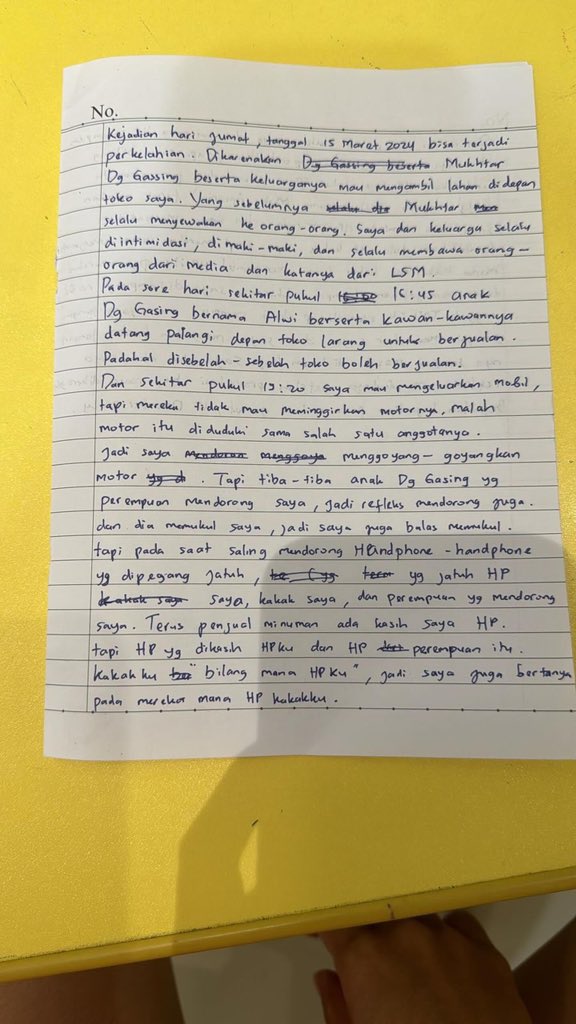 No.
Kejadian hari Jumat, tanggal 15 Maret 2024 bisa terjadi
perkelahian. Dikarenakan Dg Gassing beserta Mukhtar
Dg Gassing beserta keluarganya mau mengambil lahan didepan
toko saya. Yang sebelumnya Mukhtar
selalu menyewakan ke orang-orang. Saya dan keluarga selalu
diintimidasi, di maki-maki, dan selalu membawa orang-
orang dari media dan katanya dari LSM.
Pada sore hari sekitar pukul 16:45 anak
Dg Gasing bernama Alwi berserta kawan-kawannya
datang palangi depan toko larang untuk berjualan.
Padahal disebelah-sebelah toko boleh berjualan.
Dan sekitar pukul 19:20 saya mau mengeluarkan mobil,
tapi mereka tidak mau meminggirkan motornya, malah
motor itu diduduki sama salah satu anggotanya.
Jadi saya menggoyang-goyangkan
motor. Tapi tiba-tiba anak Dg Gasing yg
perempuan mendorong saya, jadi refleks mendorong juga.
dan dia memukul saya, jadi saya juga balas memukul.
tapi pada saat saling mendorong Handphone-handphone
yg dipegang jatuh, yg jatuh HP
kakak saya saya, kakak saya, dan perempuan yg mendorong
saya. Terus penjual minuman ada kasih saya HP.
tapi HP yg dikasih HPku dan HP perempuan itu.
kakakku "bilang mana HPku", jadi saya juga bertanya
pada mereka mana HP kakakku.